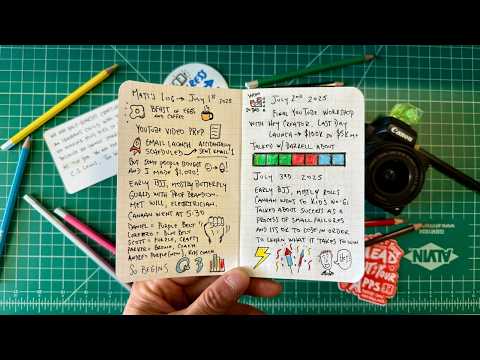 MATT'S LOG → JULY 1ST 2025
BREAST OF EGGS
AND COFFEE
YOUTUBE VIDEO PREP
EMAIL LAUNCH ACCIDENTALLY
SCHEDULED SENT EMAIL 1
BUT SOME PEOPLE BOUGHT
AND I MADE $1,020!
EARLY BJJ, MOSTLY BUTTERFLY
GUARD WITH PROF BRANDON.
MET WILL, ELECTRICIAN.
CANAAN WENT AT 5:30
DANIEL = PURPLE BELT
LORENZO = BLUE BELT
SCOTT = PURPLE, CRAFTY
PARKER = BROWN, COACH
ANDES = PURPLE, KIDS COACH
SO BEGINS
JULY 2ND 2025
FINAL YOUTUBE WORKSHOP
WITH HEY CREATOR. LAST DAY
LAUNCH → $100K
TALKED W/ DARRELL ABOUT
JULY 3RD 2025
EARLY BJJ, MOSTLY ROLLS
CANAAN WENT TO KIDS NO-GI
TALKED ABOUT SUCCESS AS A
PROCESS OF SMALL FAILURES
AND IT'S OK TO LOSE IN ORDER
TO LEARN WHAT IT TAKES TO WIN
Canon
ALVIN
LEAD
APPS